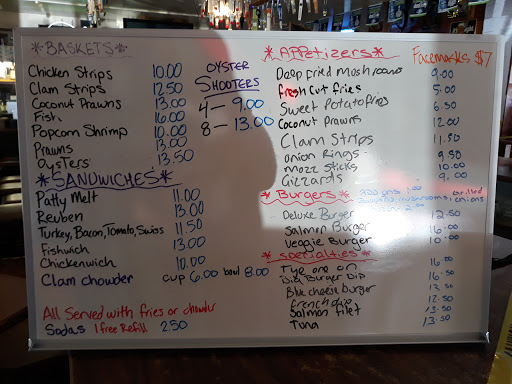 *BASKETS*
Chicken Strips 10.00
Clam Strips 12.50
Coconut Prawns 13.00
Fish 16.00
Popcorn Shrimp 10.00
Prawns 13.00
Oysters 13.50
OYSTER
SHOOTERS
4 — 9.00
8 — 13.00
*SANDWICHES*
Patty Melt 11.00
Reuben 13.00
Turkey, Bacon, Tomato, Swiss 11.50
Fishwich 13.00
Chickenwich 10.00
Clam chowder cup 6.00 bowl 8.00
All Served with fries or chowder
Sodas 1 free Refill 2.50
*APPetizers* Facemasks $7
Deep fried mushrooms 9.00
fresh cut fries 5.00
Sweet Potato fries 6.50
Coconut prawns 12.00
Clam Strips 11.50
Onion Rings - 9.50
Mozz Sticks 10.00
Gizzards 9.00
*Burgers*
grilled
onions
Deluxe Burger 12.50
Salmon Burger 16.00
Veggie Burger 10.00
*Specialties*
Tye one on 16.00
Big Burger Dip 16.50
Blue cheese burger 13.50
french dip 12.50
Salmon filet 13.50
Tuna 13.50